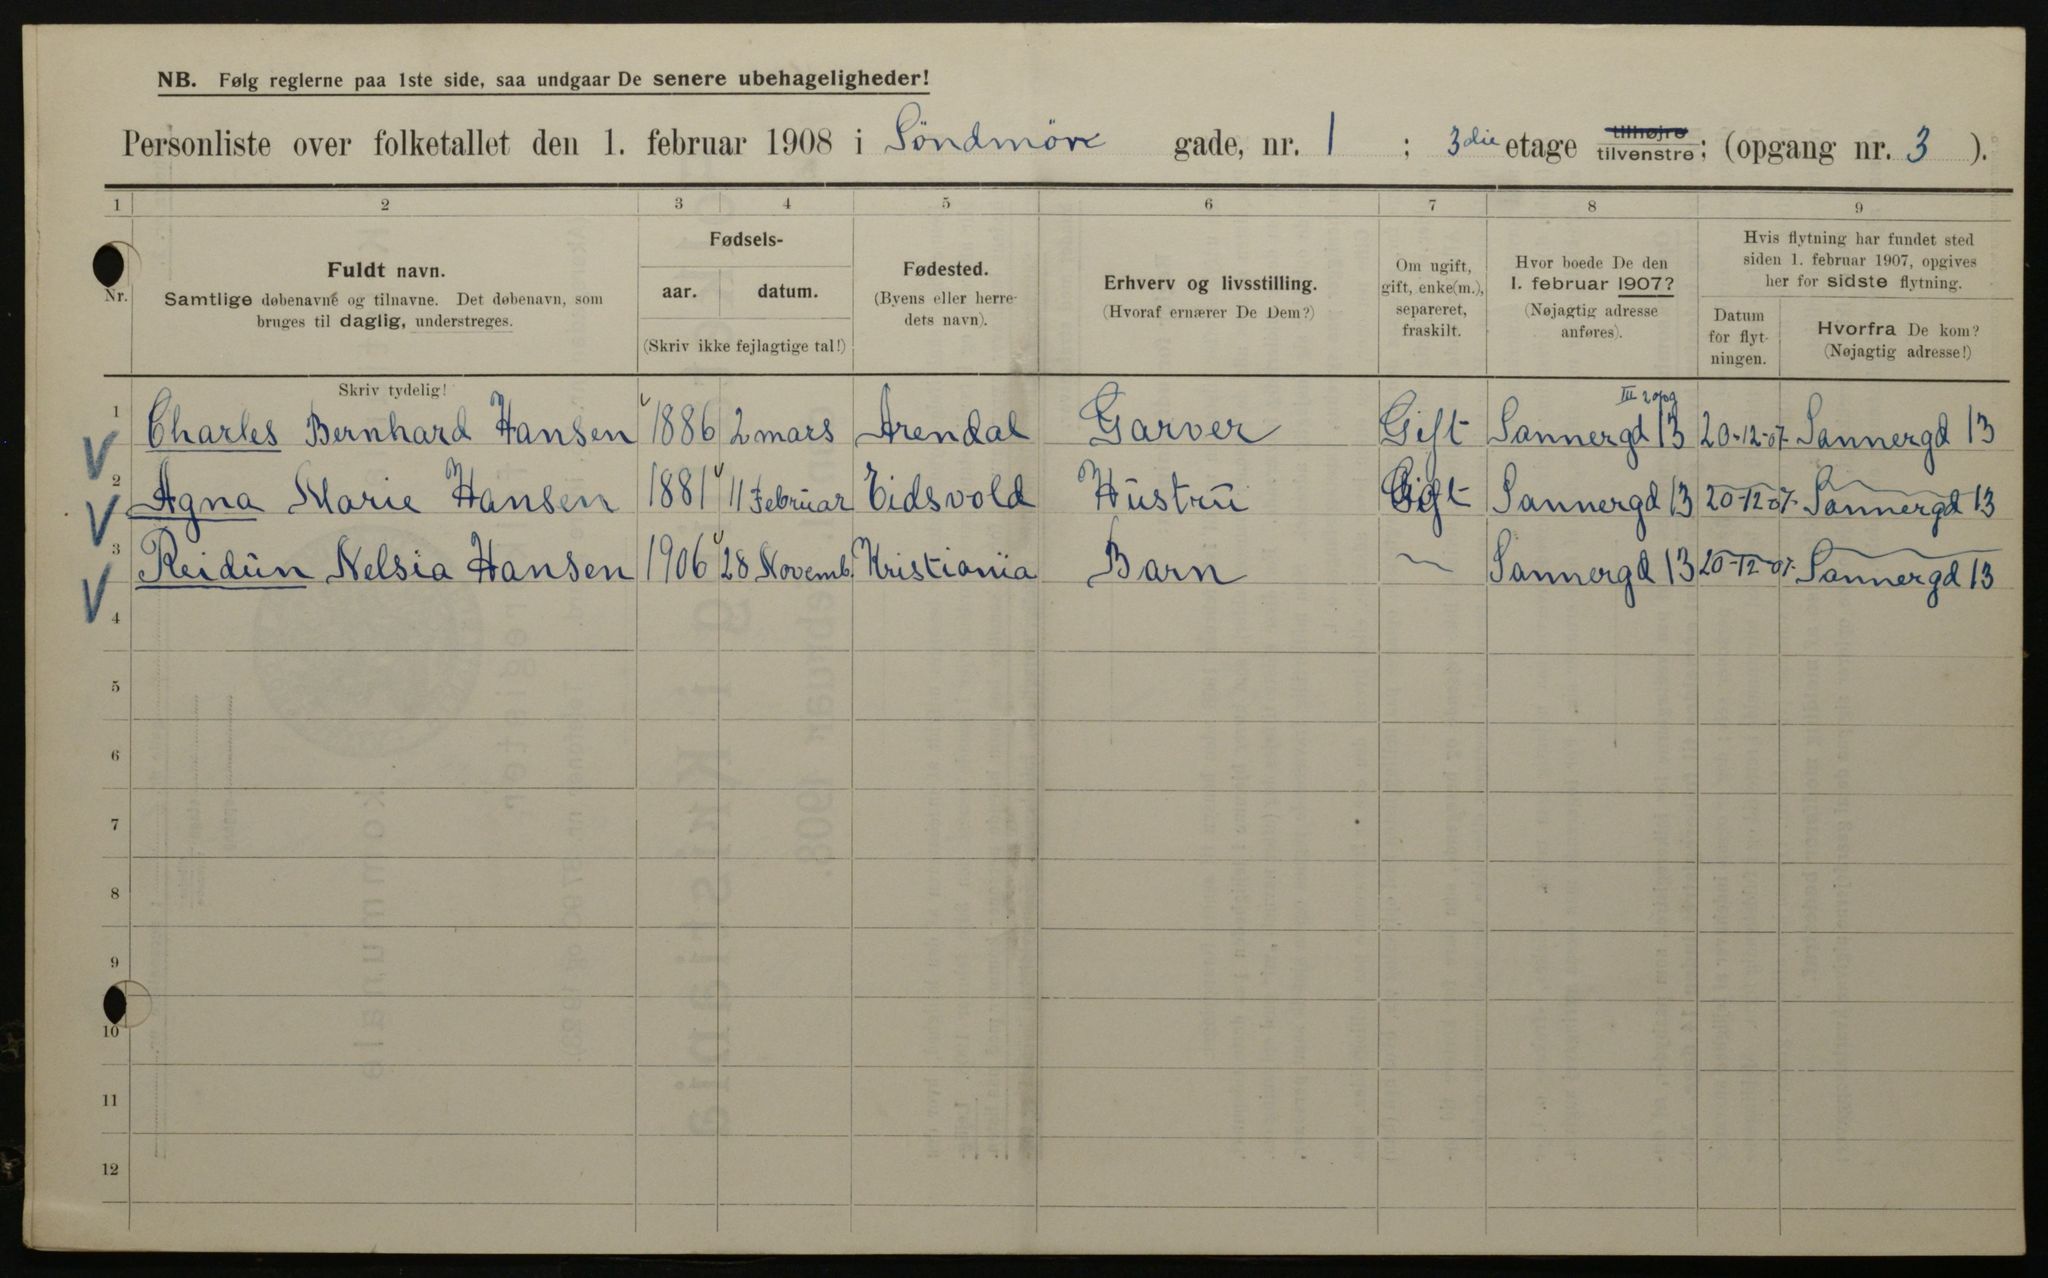 NB. Følg reglerne paa 1ste side, saa undgaar De senere ubehageligheder!
Personliste over folketallet den 1. februar 1908 i Söndmöre gade, nr. 1 ; 3die etage tilhøjre tilvenstre; (opgang nr. 3 ).
1 2 3 4 5 6 7 8 9
Nr.
Fuldt navn.
Samtlige døbenavne og tilnavne. Det døbenavn, som
bruges til daglig, understreges.
Fødsels-
aar. datum.
(Skriv ikke fejlagtige tal!)
Fødested.
(Byens eller herre-
dets navn).
Erhverv og livsstilling.
(Hvoraf ernærer De Dem?)
Om ugift,
gift, enke(m.),
separeret,
fraskilt.
Hvor boede De den
1. februar 1907?
(Nøjagtig adresse
anføres).
Hvis flytning har fundet sted
siden 1. februar 1907, opgives
her for sidste flytning.
Datum
for flyt-
ningen.
Hvorfra De kom?
(Nøjagtig adresse!)
Skriv tydelig!
1 Charles Bernhard Hansen 1886 2 mars Arendal Garver Gift Sannergd 13 20-12-07. Sannergd 13
2 Agna Marie Hansen 1881 11 Februar Eidsvold Hustru Gift Sannergd 13 20-12-07. Sannergd 13
3 Reidun Nelsia Hansen 1906 28 Novemb. Kristiania Barn ~ Sannergd 13 20-12-07. Sannergd 13
4
5
6
7
8
9
10
11
12